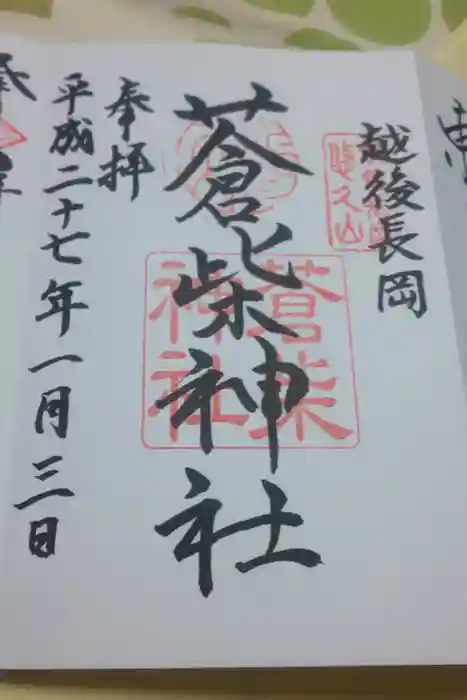 越後長岡
悠久山
蒼柴神社
蒼柴
神社
奉拝
平成二十七年一月三日